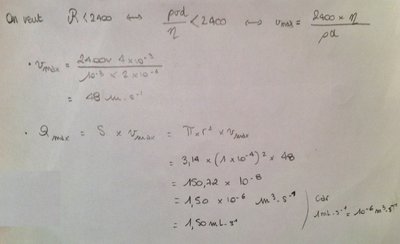 On veut R < 2400 ⟺ ρvd/η < 2400 ⟺ vmax = 2400 × η / ρd
• vmax = 2400 × 4×10⁻³ / 10⁻³ × 2×10⁻⁴
= 48 m.s⁻¹
• Qmax = S × vmax = π × r² × vmax
= 3,14 × (1 × 10⁻⁴)² × 48
= 150,72 × 10⁻⁸
= 1,50 × 10⁻⁶ m³.s⁻¹
= 1,50 mL.s⁻¹
car
1mL.s⁻¹ = 10⁻⁶ m³.s⁻¹